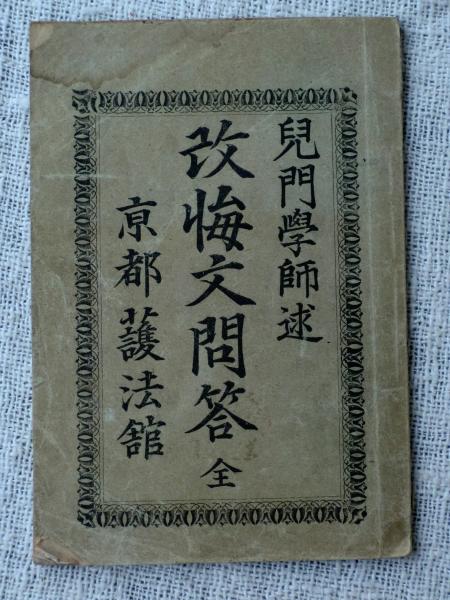 兒門學師述
改悔文問答 全
京都 護法館